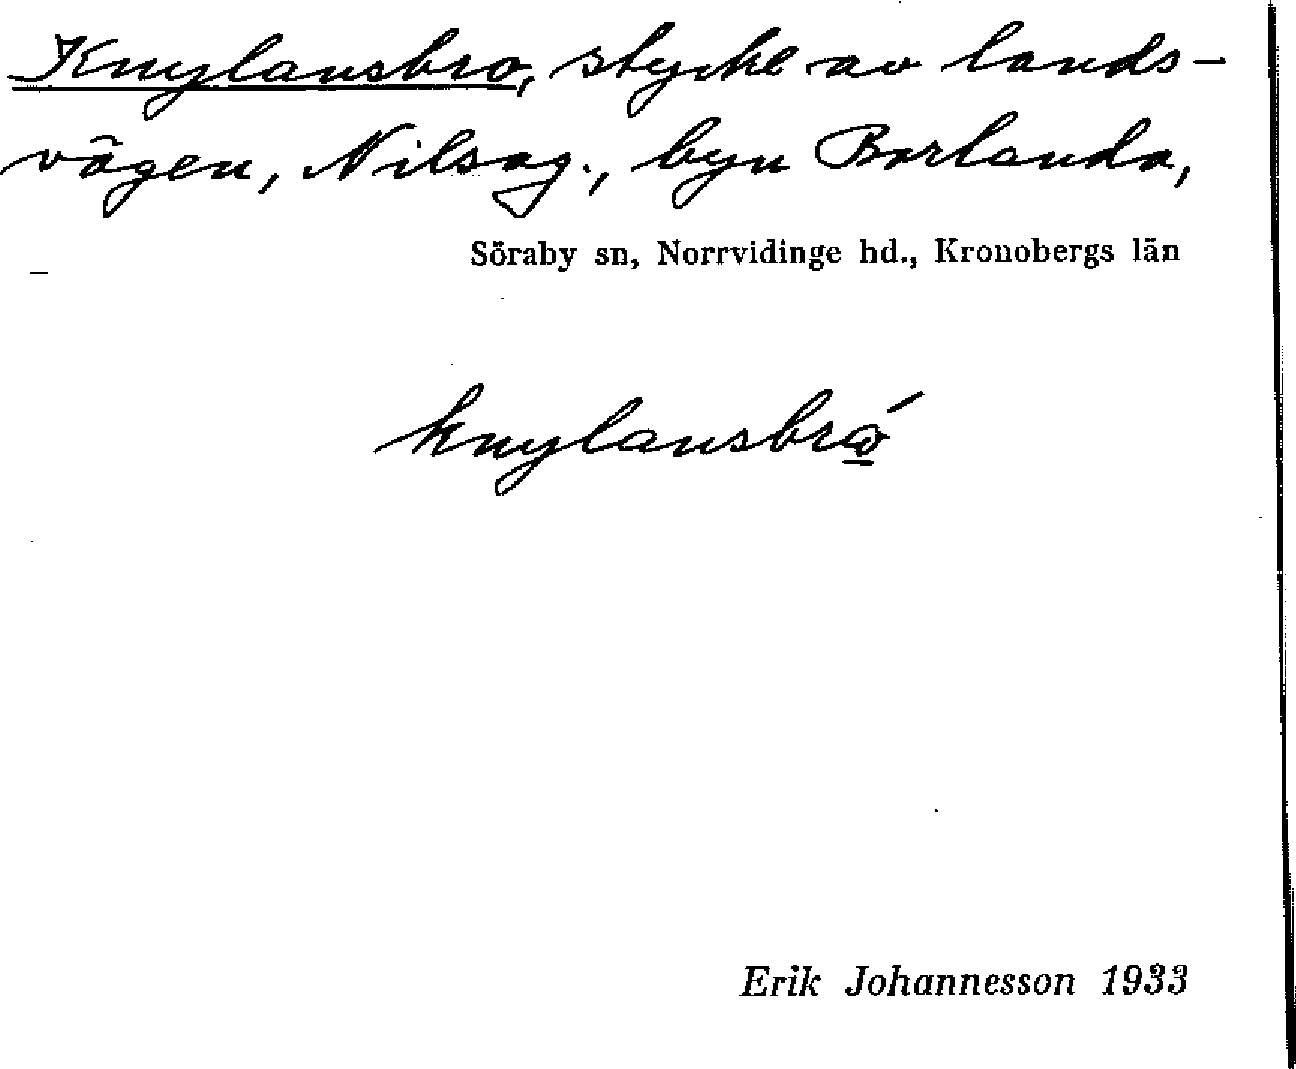 Knylansbro, stycke av lands-
vägen, Nilsag., byn Borlanda,
Söraby sn, Norrvidinge hd., Kronobergs län
knylansbro̲
Erik Johannesson 1933